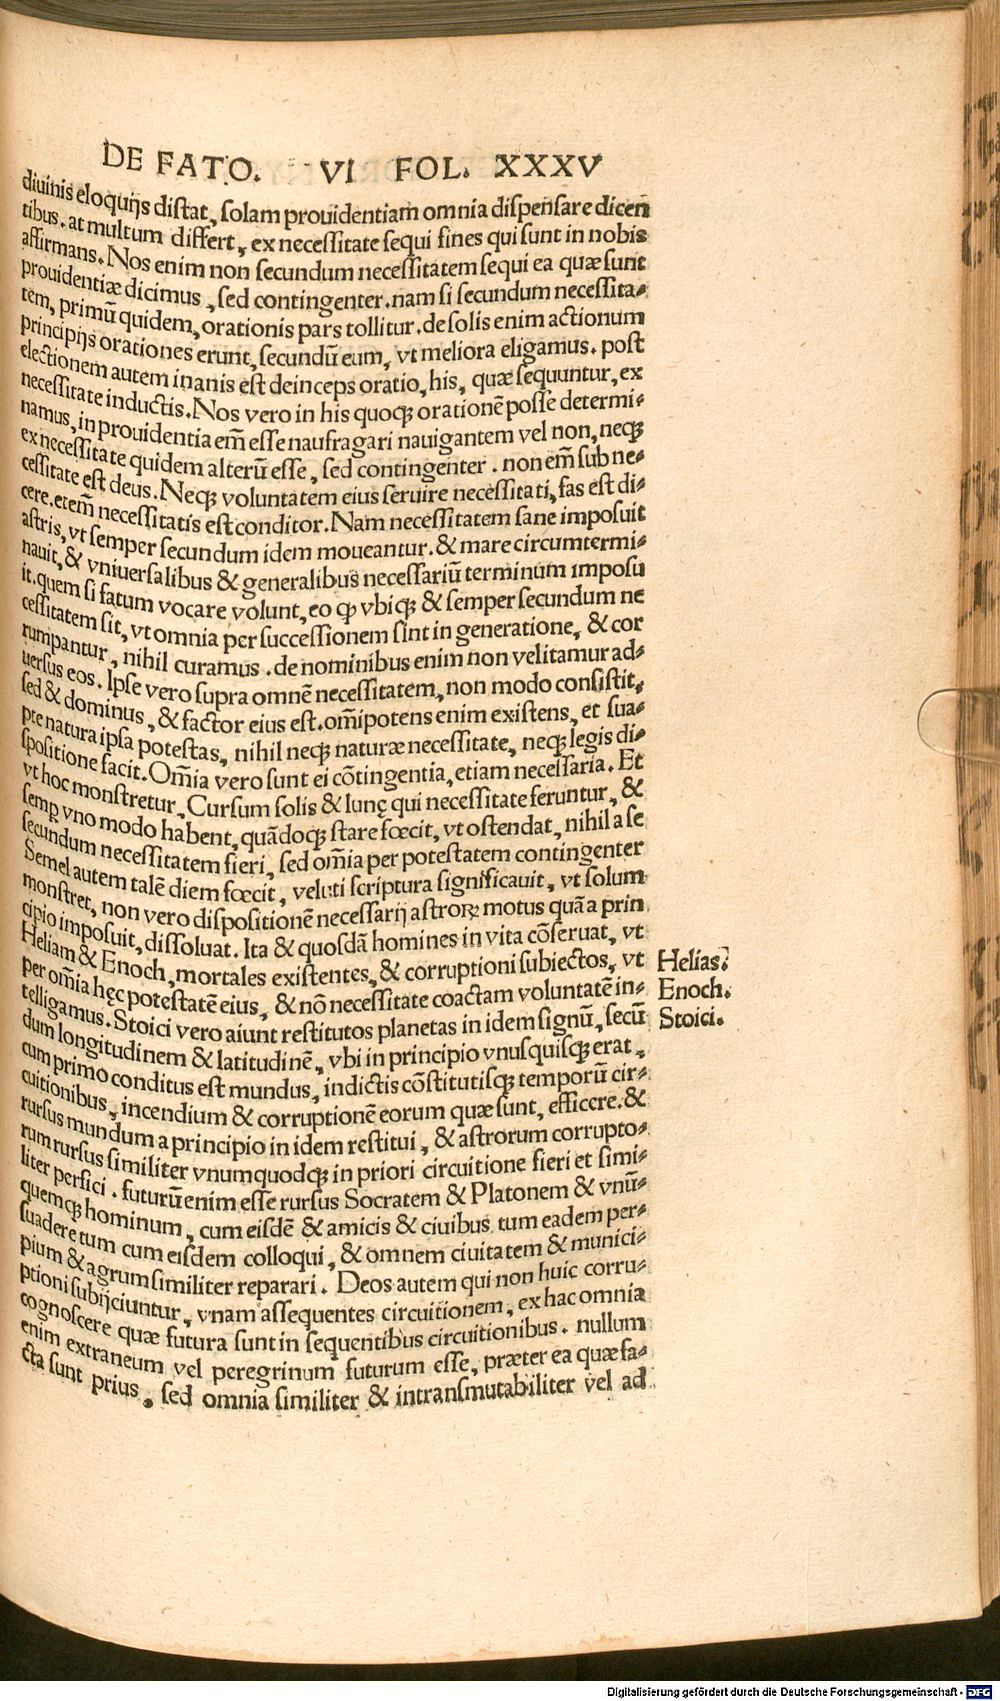 DE FATO. VI FOL. XXXV
diuinis eloquijs distat, solam prouidentiam omnia dispensare diceñ
tibus. at multum differt, ex necessitate sequi fines qui sunt in nobis
affirmans. Nos enim non secundum necessitatem sequi ea quæ sunt
prouidentiæ dicimus, sed contingenter. nam si secundum necessita-
tem, primũ quidem, orationis pars tollitur. de solis enim actionum
principijs orationes erunt, secundũ eum, vt meliora eligamus. post
electionem autem inanis est deinceps oratio, his, quæ sequuntur, ex
necessitate inductis. Nos vero in his quoqꝫ orationẽ posse determi-
namus, in prouidentia em̃ esse naufragari nauigantem vel non, neqꝫ
ex necessitate quidem alterũ esse, sed contingenter. non em̃ sub ne-
cessitate est deus. Neqꝫ voluntatem eius seruire necessitati, fas est di-
cere. etem̃ necessitatis est conditor. Nam necessitatem sane imposuit
astris, vt semper secundum idem moueantur. & mare circumtermi-
nauit, & vniuersalibus & generalibus necessariũ terminum imposu
it. quem si fatum vocare volunt, eo ꝙ vbiqꝫ & semper secundum ne
cessitatem sit, vt omnia per successionem sint in generatione, & cor
rumpantur, nihil curamus. de nominibus enim non velitamur ad-
uersus eos. Ipse vero supra omnẽ necessitatem, non modo consistit,
sed & dominus, & factor eius est. om̃ipotens enim existens, et sua-
pte natura ipsa potestas, nihil neqꝫ naturæ necessitate, neqꝫ legis di-
spositione facit. Om̃ia vero sunt ei cõtingentia, etiam necessaria. Et
vt hoc monstretur, Cursum solis & lunę qui necessitate feruntur, &
semꝑ vno modo habent, quãdoqꝫ stare fœcit, vt ostendat, nihil a se
secundum necessitatem fieri, sed om̃ia per potestatem contingenter
Semel autem talẽ diem fœcit, veluti scriptura significauit, vt solum
monstret, non vero dispositionẽ necessarij astroꝝ motus quã a prin
cipio imposuit, dissoluat. Ita & quosdã homines in vita cõseruat, vt
Heliam & Enoch, mortales existentes, & corruptioni subiectos, vt
per om̃ia hęc potestatẽ eius, & nõ necessitate coactam voluntatẽ in-
telligamus. Stoici vero aiunt restitutos planetas in idem signũ, secũ
dum longitudinem & latitudinẽ, vbi in principio vnusquisqꝫ erat,
cum primo conditus est mundus, indictis cõstitutisqꝫ temporũ cir-
cuitionibus, incendium & corruptionẽ eorum quæ sunt, efficere. &
rursus mundum a principio in idem restitui, & astrorum corrupto-
rum rursus similiter vnumquodqꝫ in priori circuitione fieri et simi-
liter persici. futurũ enim esse rursus Socratem & Platonem & vnũ-
quemqꝫ hominum, cum eisdẽ & amicis & ciuibus tum eadem per-
suadere tum cum eisdem colloqui, & omnem ciuitatem & munici-
pium & agrum similiter reparari. Deos autem qui non huic corru-
ptioni subijciuntur, vnam assequentes circuitionem, ex hac omnia
cognoscere quæ futura sunt in sequentibus circuitionibus. nullum
enim extraneum vel peregrinum futurum esse, præter ea quæ fa-
cta sunt prius, sed omnia similiter & intransmutabiliter vel ad
Helias.
Enoch.
Stoici.
Digitalisierung gefördert durch die Deutsche Forschungsgemeinschaft - DFG